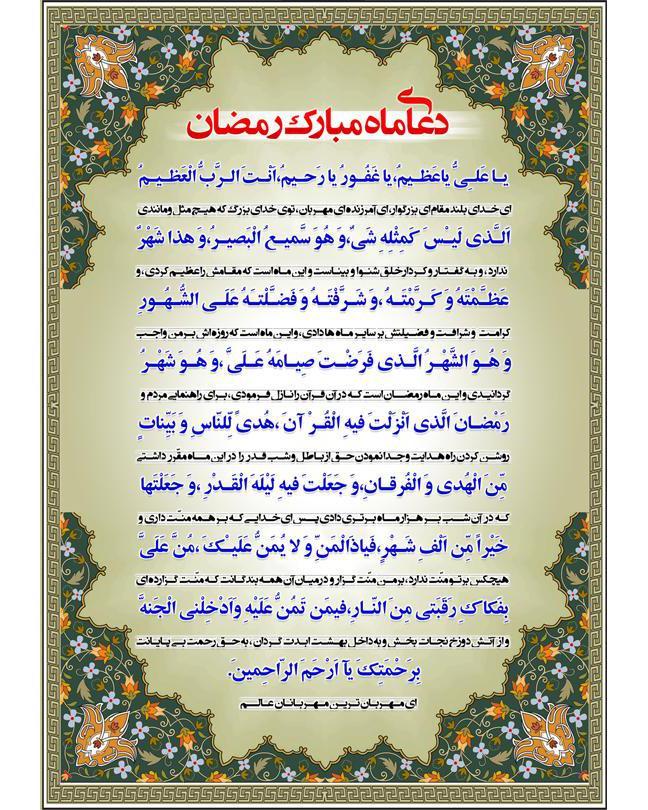 دعای ماه مبارک رمضان
یا عَلِیُّ یا عَظیمُ، یا غَفُورُ یا رَحیمُ، اَنْتَ الرَّبُّ الْعَظیمُ
ای خدای بلند مقام ای بزرگوار، ای آمرزنده ای مهربان، توی خدای بزرگ که هیچ مثل و مانندی
اَلَّذی لَیْسَ کَمِثْلِهِ شَیٌ، وَ هُوَ سَّمیعُ الْبَصیرُ، وَ هذا شَهْرٌ
ندارد، و به گفتار و کردار خلق شنوا و بیناست و این ماه است که مقامش را عظیم کردی، و
عَظَّمْتَهُ وَ کَرَّمْتَهُ، وَ شَرَّفْتَهُ وَ فَضَّلْتَهُ عَلَی الشُّهُورِ
کرامت و شرافت و فضیلتش بر سایر ماه ها دادی، و این ماه است که روزه اش بر من واجب
وَ هُوَ الشَّهْرُ الَّذی فَرَضْتَ صِیامَهُ عَلَیَّ، وَ هُوَ شَهْرُ
گردانیدی و این ماه رمضان است که در آن قرآن را نازل فرمودی، برای راهنمایی مردم و
رَمَضانَ الَّذی اَنْزَلْتَ فیهِ الْقُرْآنَ، هُدیً لِّلنّاسِ وَ بَیِّناتٍ
روشن کردن راه هدایت و جدا نمودن حق از باطل و شب قدر را در این ماه مقرّر داشتی
مِّنَ الْهُدی وَ الْفُرقانِ، وَ جَعَلْتَ فیهِ لَیْلَهَ الْقَدْرِ، وَ جَعَلْتَها
که در آن شب بر هزار ماه برتری دادی پس ای خدایی که بر همه منّت داری و
خَیْراً مِّن اَلْفِ شَهْرٍ، فَیاذَالْمَنِّ وَ لا یُمَنُّ عَلَیْکَ، مُنَّ عَلَیَّ
هیچکس بر تو منّت ندارد، بر من منّت گزار و در میان آن همه بندگانت که منّت گزارده ای
بِفَکاکِ رَقَبَتی مِنَ النّارِ، فیمَن تَمُنُّ عَلَیْهِ وَ اَدْخِلْنی الْجَنهَّ
و از آتش دوزخ نجات بخش و به داخل بهشت ابدت گردان، به حق رحمت بی پایانت
بِرَحْمَتِکَ یآ اَرْحَمَ الرّاحِمینَ.
ای مهربان ترین مهربانان عالم